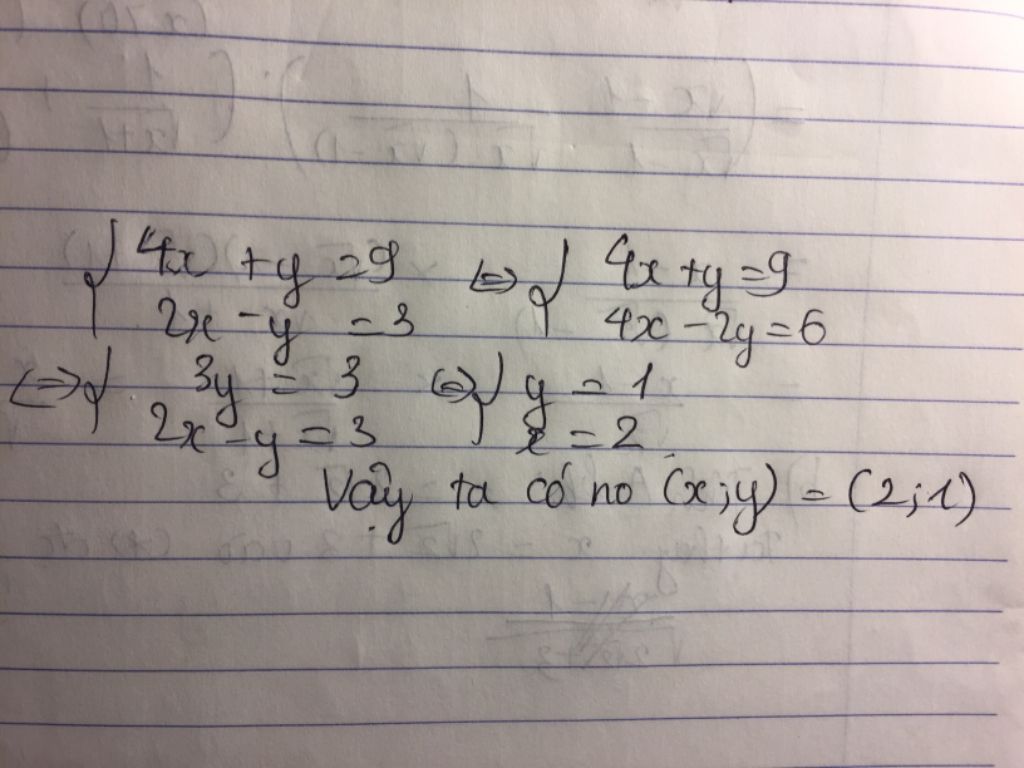 { 4x + y = 9 <=> { 4x + y = 9
2x - y = 3 4x - 2y = 6
<=> { 3y = 3 <=> { y = 1
2x - y = 3 x = 2
Vậy ta có no (x;y) = (2;1)